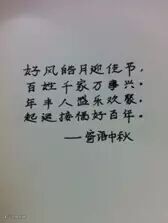 好风皓月迎佳节，
百姓千家万事兴，
年丰人盛乐欢聚，
起运接福好百年。
——寄语中秋